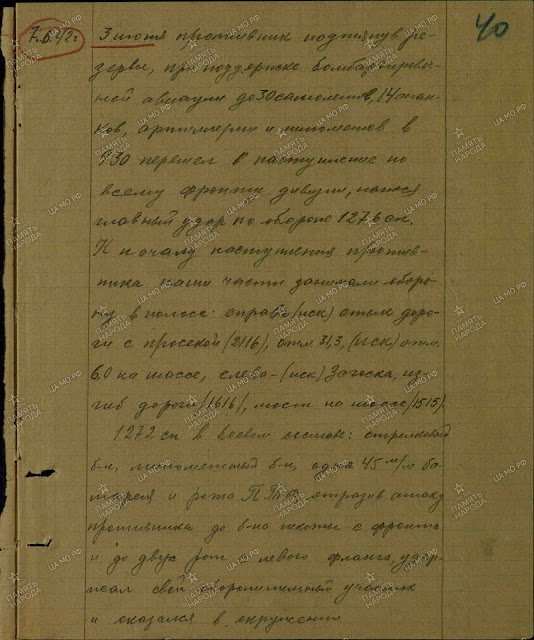 7.6.42г
40
3 июня противник подтянув ре-
зервы, при поддержке бомбардировоч-
ной авиации до 30 самолетов, 14 тан-
ков, артиллерии и минометов в
9.30 перешел в наступление по
всему фронту дивизии, нанося
главный удар по обороне 1276 сп.
К началу наступления против-
ника наши части занимали оборо-
ну в полосе: справа (иск) стык доро-
ги с просекой (2116), отм. 31,3, (иск) отм.
6.0 на шоссе, слева - (иск) Загоска, из-
гиб дороги (1616), мост на шоссе (1515).
1272 сп в боевом составе: стрелковый
б-н, минометный б-н, одна 45 м/м ба-
тарея и рота ПТР, отразив атаку
противника до б-на пехоты с фронта
и до двух рот с левого фланга, удер-
жал свой оборонительный участок
и оказался в окружении
ПАМЯТЬ НАРОДА
ЦА МО РФ